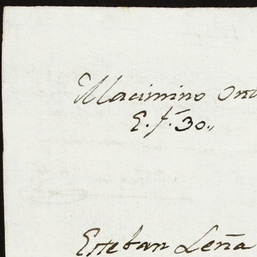 Macimino
E. f. 30.,
Esteban Leña